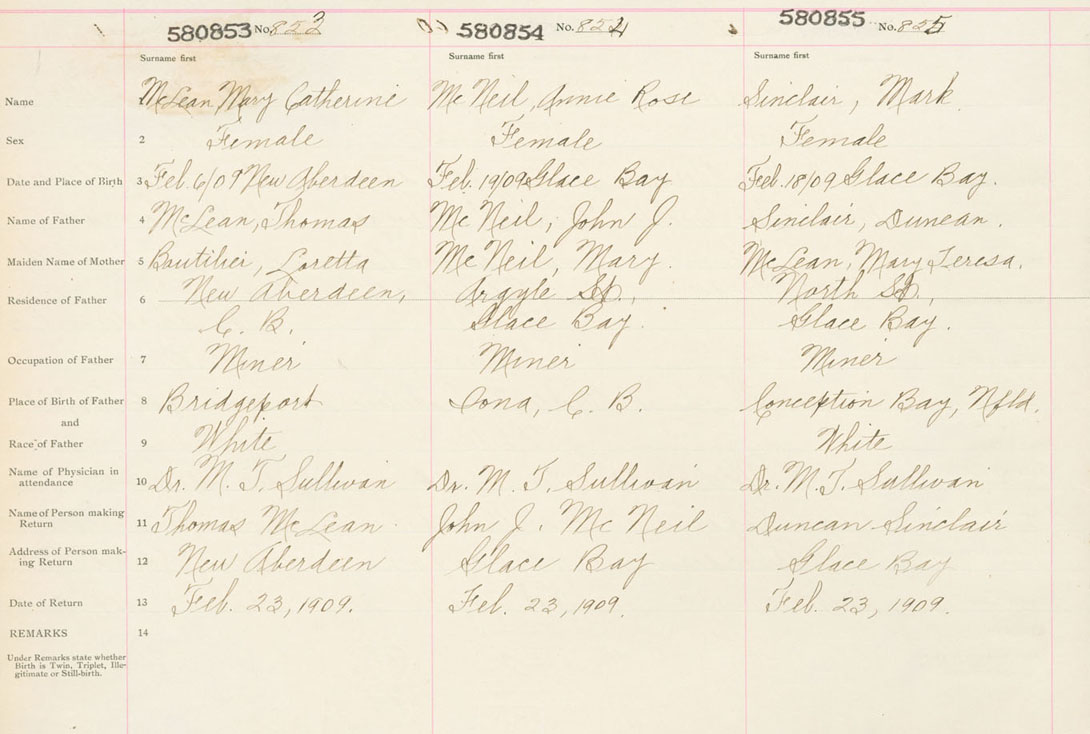 580853 No. 823
580854 No. 824
580855 No. 825
Surname first
Surname first
Surname first
Name
McLean Mary Catherine
McNeil, Annie Rose
Sinclair, Mark
Sex
2
Female
Female
Female
Date and Place of Birth
3
Feb. 6/09 New Aberdeen
Feb. 19/09 Glace Bay
Feb. 18/09 Glace Bay.
Name of Father
4
McLean, Thomas
McNeil, John J.
Sinclair, Duncan.
Maiden Name of Mother
5
Boutilier, Loretta
McNeil, Mary.
McLean, Mary Teresa.
Residence of Father
6
New Aberdeen,
C. B.
Argyle St.,
Glace Bay.
North St.,
Glace Bay.
Occupation of Father
7
Miner
Miner
Miner
Place of Birth of Father
and
8
Bridgeport
Iona, C. B.
Conception Bay, Nfld.
Race of Father
9
White
White
Name of Physician in
attendance
10
Dr. M. T. Sullivan
Dr. M. T. Sullivan
Dr. M. T. Sullivan
Name of Person making
Return
11
Thomas McLean
John J. McNeil
Duncan Sinclair
Address of Person mak-
ing Return
12
New Aberdeen
Glace Bay
Glace Bay
Date of Return
13
Feb. 23, 1909.
Feb. 23, 1909.
Feb. 23, 1909.
REMARKS
14
Under Remarks state whether
Birth is Twin, Triplet, Ille-
gitimate or Still-birth.